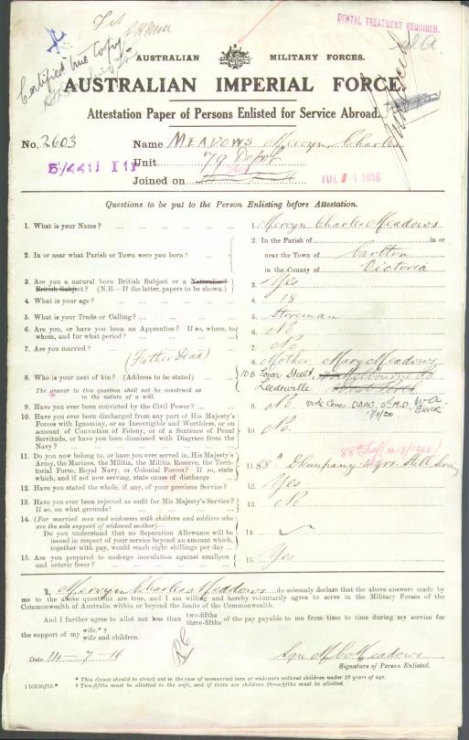 DENTAL TREATMENT REQUIRED.
Certified True Copy
AUSTRALIAN MILITARY FORCES.
AUSTRALIAN IMPERIAL FORCE
Attestation Paper of Persons Enlisted for Service Abroad.
No. 2603 Name MEADOWS Mervyn Charles
Unit 79 Depot
Joined on
Questions to be put to the Person Enlisting before Attestation.
1. What is your Name? 1. Mervyn Charles Meadows
2. In or near what Parish or Town were you born? 2. In the Parish of in or
near the Town of Carlton
in the County of Victoria
3. Are you a natural born British Subject or a Naturalized British Subject? (N.B.—If the latter, papers to be shown.) 3. Yes
4. What is your age? 4. 18
5. What is your Trade or Calling? 5. Storeman
6. Are you, or have you been an Apprentice? If so, where, to whom, and for what period? 6. No
7. Are you married? 7. No
(Father Dead)
8. Who is your next of kin? (Address to be stated) 8. Mother Mary Meadows
Leederville
The answer to this question shall not be construed as in the nature of a will.
9. Have you ever been convicted by the Civil Power? 9. No
10. Have you ever been discharged from any part of His Majesty's Forces with Ignominy, or as Incorrigible and Worthless, or on account of Conviction of Felony, or of a Sentence of Penal Servitude, or have you been dismissed with Disgrace from the Navy? 10. No
11. Do you now belong to, or have you ever served in, His Majesty's Army, the Marines, the Militia, the Militia Reserve, the Territorial Force, Royal Navy, or Colonial Forces? If so, state which, and if not now serving, state cause of discharge 11. 88th D Company
12. Have you stated the whole, if any, of your previous Service? 12. Yes
13. Have you ever been rejected as unfit for His Majesty's Service? If so, on what grounds? 13. No
14. (For married men and widowers with children and soldiers who are the sole support of widowed mother)—
Do you understand that no Separation Allowance will be issued in respect of your service beyond an amount which, together with pay, would reach eight shillings per day 14.
15. Are you prepared to undergo inoculation against smallpox and enteric fever? 15. Yes
I, Mervyn Charles Meadows do solemnly declare that the above answers made by
me to the above questions are true, and I am willing and hereby voluntarily agree to serve in the Military Forces of the
Commonwealth of Australia within or beyond the limits of the Commonwealth.
And I further agree to allot not less than two-fifths three-fifths of the pay payable to me from time to time during my service for
the support of my wife.*† wife and children.
Date 14-7-16 Sgn M C Meadows
Signature of Person Enlisted.
* This clause should be struck out in the case of unmarried men or widowers without children under 18 years of age.
† Two-fifths must be allotted to the wife, and if there are children three-fifths must be allotted.